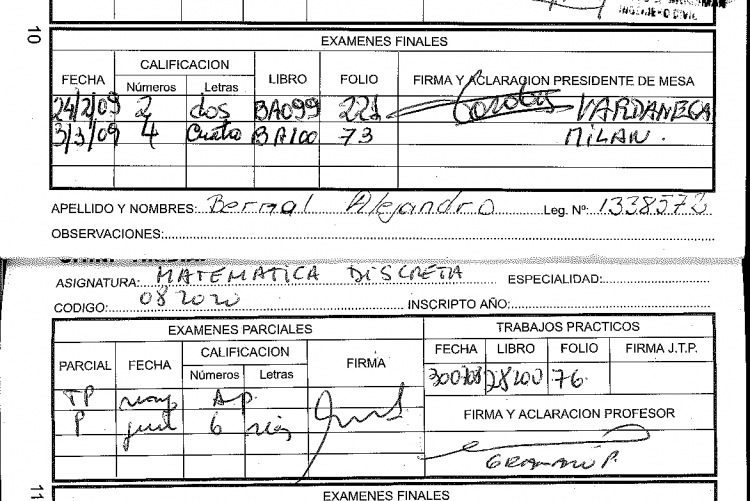 INGENIERO CIVIL
10
EXAMENES FINALES
FECHA CALIFICACION Números Letras LIBRO FOLIO FIRMA Y ACLARACION PRESIDENTE DE MESA
24/2/09 2 dos BA099 221 VARDANEGA
3/3/09 4 Cuatro BA100 73 MILAN.
APELLIDO Y NOMBRES: Bernal Alejandro Leg. Nº: 1338573
OBSERVACIONES:
ASIGNATURA: MATEMATICA DISCRETA ESPECIALIDAD:
CODIGO: 082020 INSCRIPTO AÑO:
EXAMENES PARCIALES TRABAJOS PRACTICOS
PARCIAL FECHA CALIFICACION Números Letras FIRMA FECHA LIBRO FOLIO FIRMA J.T.P.
300708 28100 76
TP Ap.
P 6 FIRMA Y ACLARACION PROFESOR
11
EXAMENES FINALES